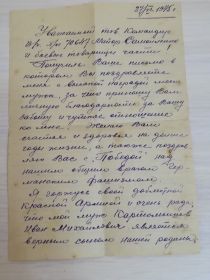 27/VI 1945 г.
Уважаемый тов Командир
в/ч п/п 70647 Майор
и боевые товарищи части
Получила Ваше письмо в
котором Вы поздравляете
меня с высокой наградой моего
мужа, за что приношу Вам
личную благодарность за Вашу
заботу и чуткое отношение
ко мне. Желаю Вам
счастья и здоровья на долгие
годы жизни, а также поздрав
ляю Вас с "Победой" над
нашим общим врагом гер-
манским фашизмом.
Я горжусь своей доблестной
Красной Армией и очень рада
что мой муж
Иван Михайлович является
верным сыном нашей родины